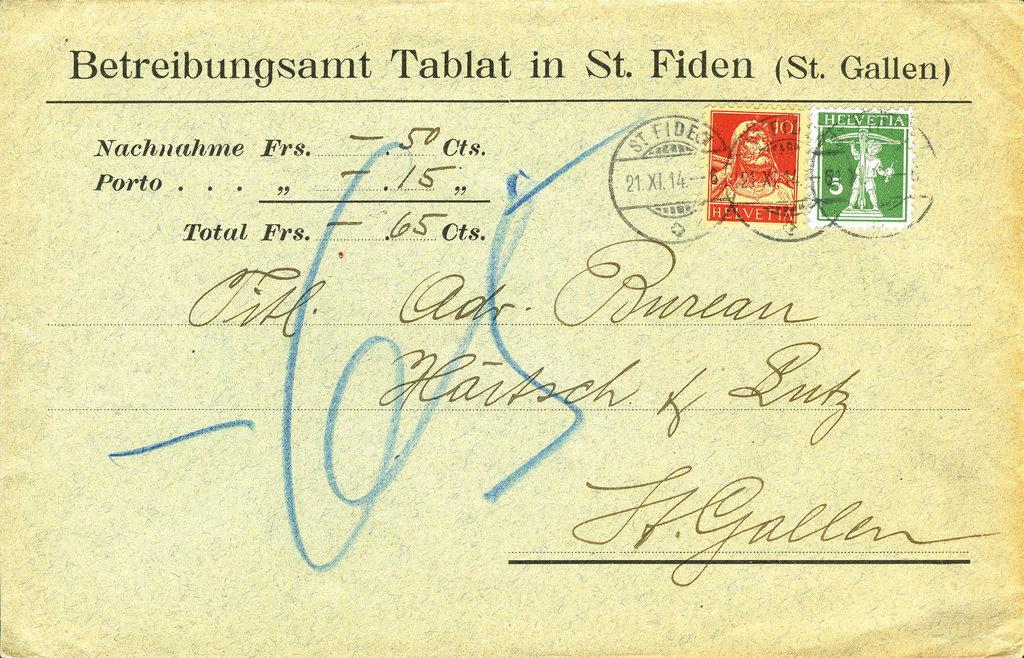 Betreibungsamt Tablat in St. Fiden (St. Gallen)
Nachnahme Frs. —.50 Cts.
Porto . . . „ —.15 „
Total Frs. —.65 Cts.
ST. FIDEN
21.XI.14.–6
10
HELVETIA
21.XI.14.–6
HELVETIA
5
–65
Titl. Adv. Bureau
& Lutz
St. Gallen